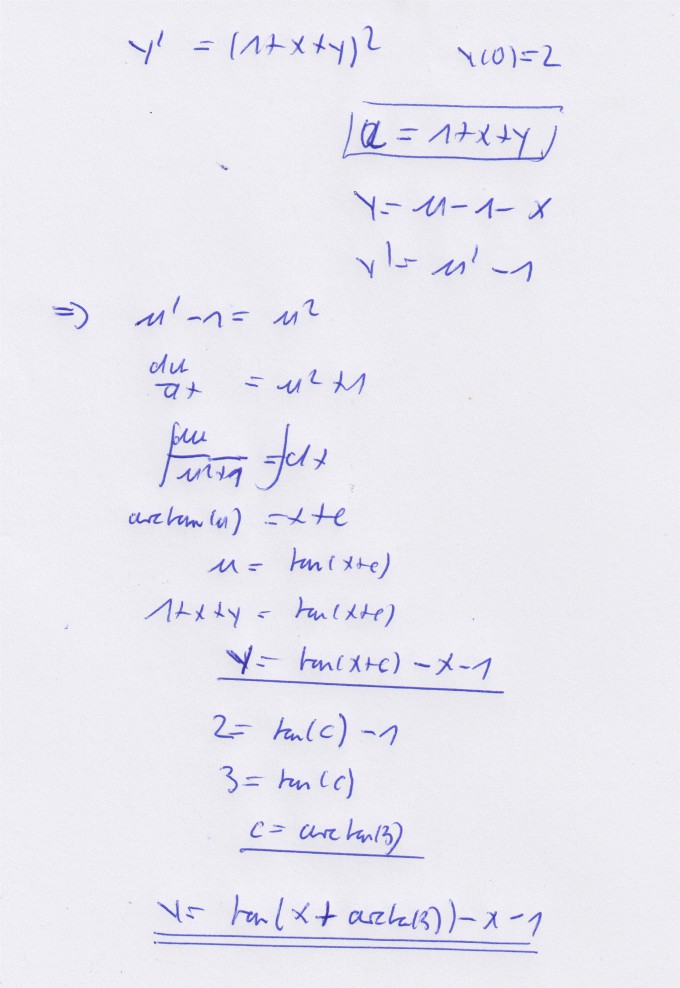 y' = (1+x+y)² y(0)=2
u = 1+x+y
y= u-1-x
y'= u'-1
=> u'-1= u²
du/dx = u²+1
∫ du/(u²+1) = ∫dx
arctan(u) =x+c
u= tan(x+c)
1+x+y = tan(x+c)
y= tan(x+c) -x-1
2= tan(c) -1
3= tan(c)
c= arctan(3)
y= tan(x+ arctan(3))-x-1